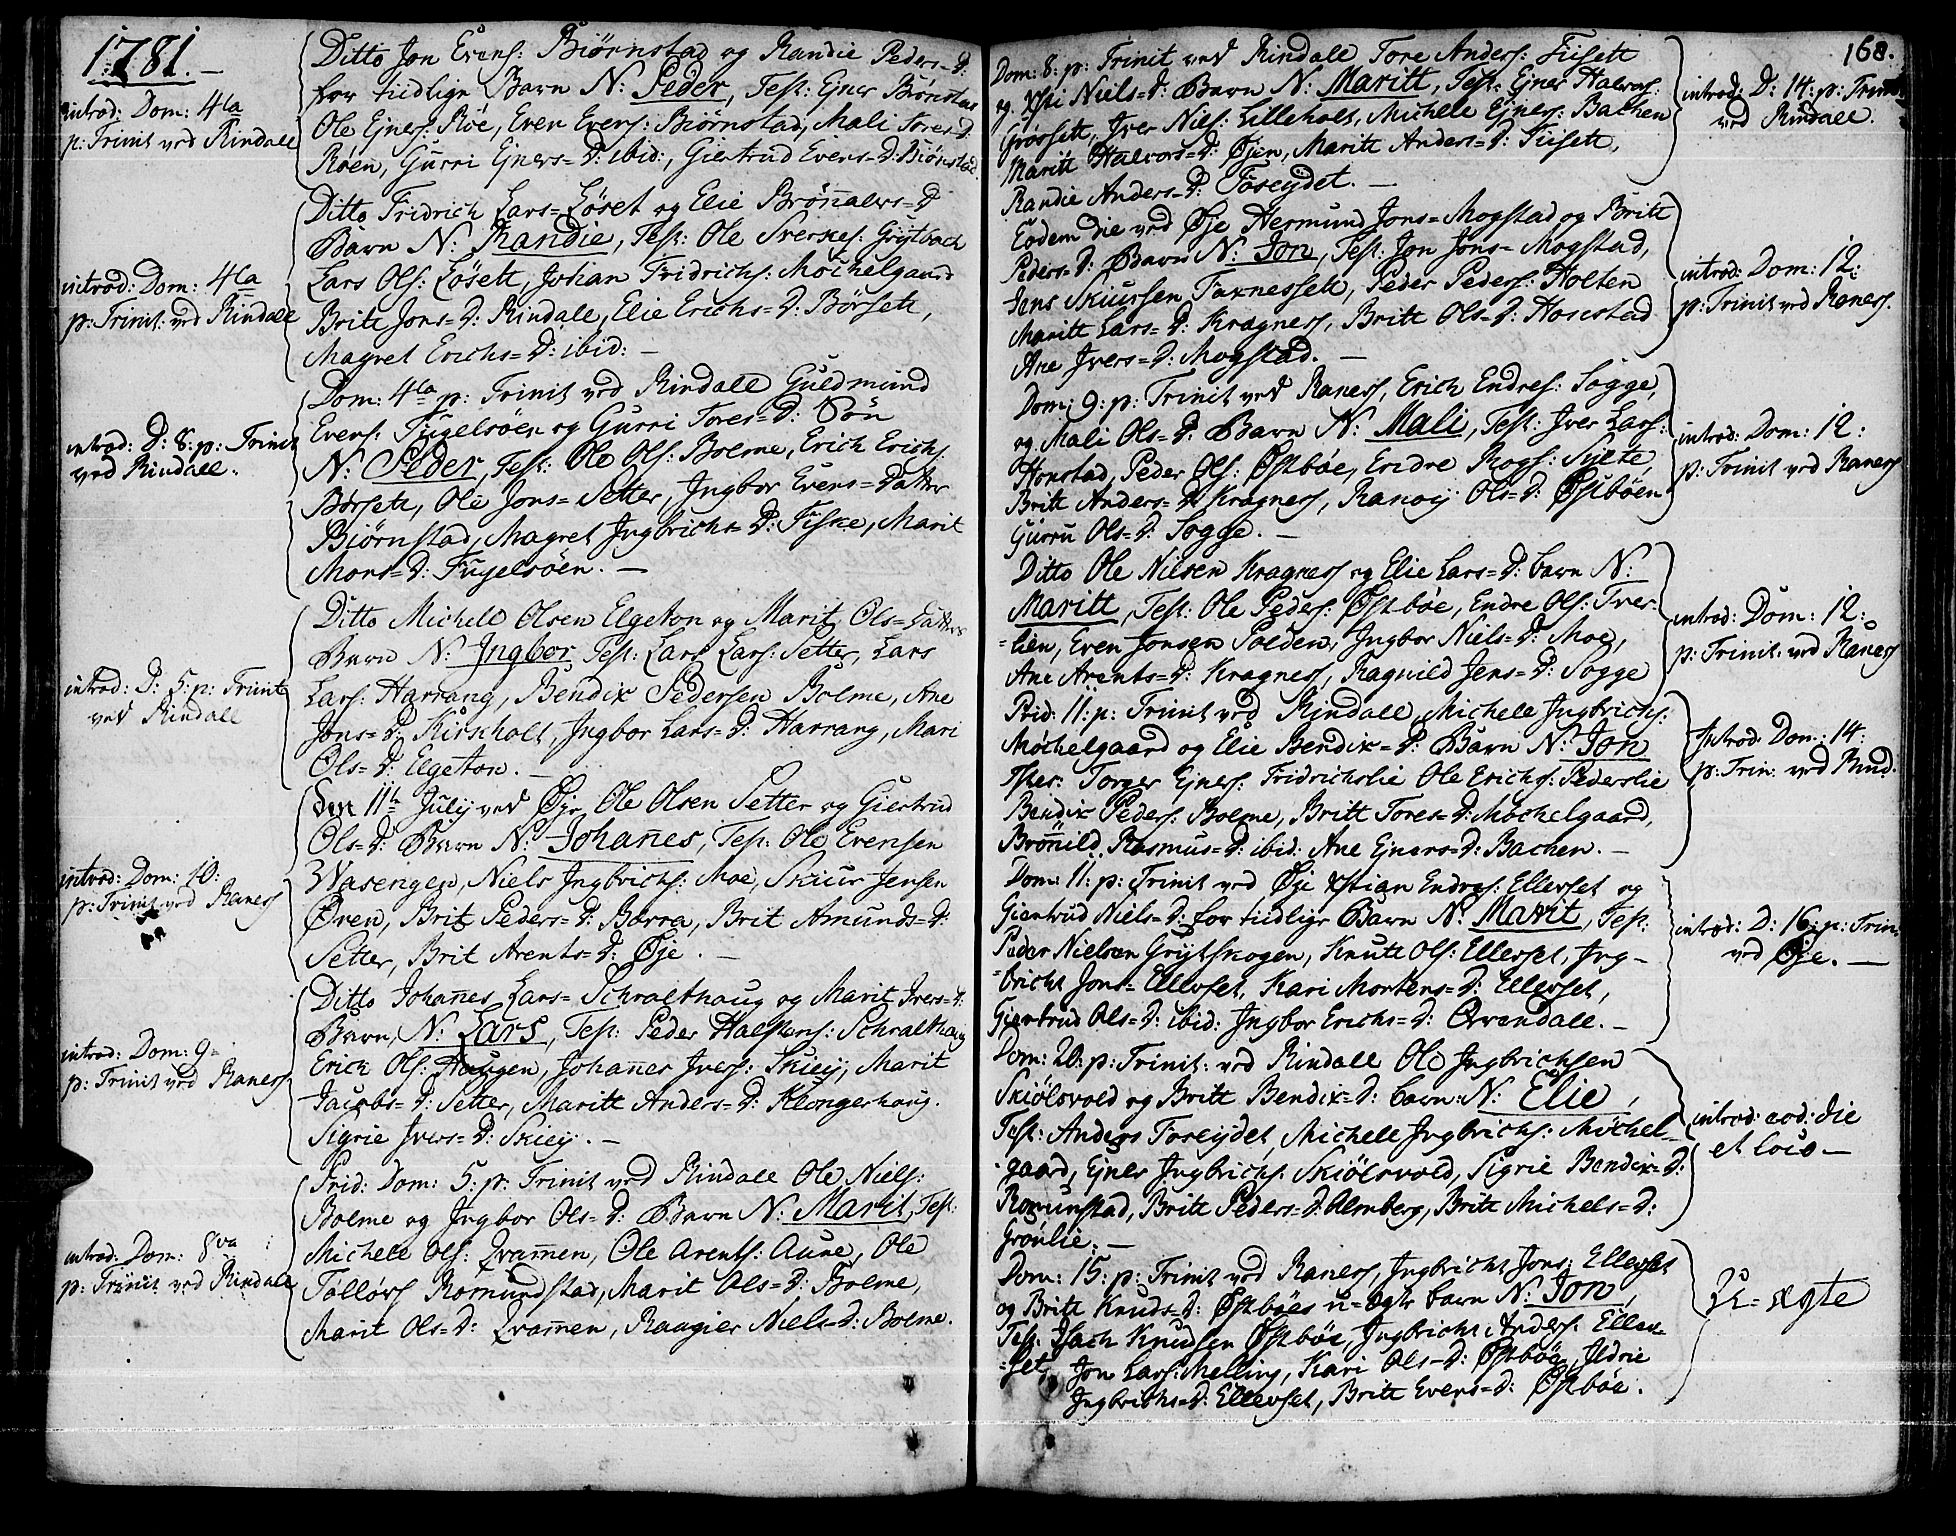 1781.
introd: Dom: 4ta
p: Trinit ved Rindale
Ditto Jon Evens: Biørnstad og Randie Peders-D:
for tiidlige Barn N: Peder, Test: Ejner Biørnstad
Ole Ejners: Røe, Even Evens: Biørnstad, Mali Tores-D:
Røen, Gurri Ejners-D: ibid:, Giertrud Evens-D: Biørnstad.
introd: Dom: 4ta
p: Trinit. ved Rindale
Ditto Fridrich Lars- Løset og Elie Brönalvs-D
Barn N: Randie, Test: Ole Sverkes: Grytbach
Lars Ols: Løsett, Johan Fridrichs: Møchelgaard
Britt Jons-D: Rindale, Elie Erichs-D: Børsett,
Magret Erichs-D: ibid: —
introd: D: 8: p: Trinit
ved Rindale.
Dom: 4ta p: Trinit ved Rindale Guldmund
Evens: Fugelsøen og Gurri Tores-D: Søn
N: Peder, Test: Ole Ols: Bolme, Erich Erichs.
Børsett, Ole Jons- Setter, Ingbor Evens-Datter
Biørnstad, Magret Ingbrichs-D: Fiske, Marit
Mons-D: Fugelsöen. —
introd: D: 5: p: Trinit
ved Rindall
Ditto Michell Olsen Elgeton og Marit Ols-Datters
Barn N: Ingbor Test: Lars Lars: Setter, Lars
Lars: Harrang, Bendix Pedersen Bolme, Ane
Jons-D: Kirkholt, Ingbor Lars-D: Harrang, Mari
Ols-D: Elgeton. —
introd: Dom: 10:
p: Trinit ved Raness
Den 11te Julij ved Øje Ole Olsen Setter og Giertrud
Ols-D: Barn N: Johanes, Test: Ole Evensen
Wasengen, Niels Ingbrichs: Moe, Skiur Jensen
Øven, Brit Peders-D: Bærra, Brit Amunds-D:
Setter, Brit Arents-D: Øje. —
introd: Dom: 9-
p: Trinit ved Raness
Ditto Johanes Lars- Schralthaug og Marit Ivers-D:
Barn, N: Lars, Test: Peder Halstens: Schralthaug
Erich Ols: Haugen, Johanes Ivers: Skiey, Marit
Jacobs-D: Setter, Maritt Anders-D: Klongerhaug.
Sigrie Ivers-D: Skiey. —
introd: Dom: 8va
p: Trinit ved Rindale
Prid: Dom: 5: p: Trinit ved Rindale Ole Niels:
Bolme og Ingbor Ols-D: Barn N: Marit, Test:
Michell Ols: Qvamen, Ole Arents: Aune, Ole
Tolløvs Romundstad, Marit Ols-D: Bolme,
Marit Ols-D: Qvamen, Raagier Niels-D: Bolme.
168.
Dom: 8: p: Trinit ved Rindale Tore Anders: Fusett
og Xsti Niels-D: Barn N: Maritt, Test: Ejner Halvors:
Grøsett, Iver Niels: Lilleholt, Michele Ejners: Bachen
Maritt Halvors-D: Øjen, Maritt Anders-D: Fusett,
Randie Anders-D: Foseydet. —
introd: D: 14: p: Trinit
ved Rindale.
Eodem die ved Øje Hermund Jons- Mogstad og Britt
Peders-D: Barn N: Jon, Test: Jon Jons- Mogstad,
Jens Skiursen Faxnessett, Peder Peders: Holten
Maritt Lars-D: Kragness, Britt Ols-D: Honstad
Ane Ivers-D: Mogstad. —
introd: Dom: 12:
p: Trinit ved Raness.
Dom: 9: p: Trinit ved Raness, Erich Endres: Sogge,
og Mali Ols-D: Barn N: Mali, Test: Iver Lars:
Honstad, Peder Ols: Østbøe, Endre Rogs: Sylte,
Britt Anders-D: Kragness, Ranoy Ols-D: Østbøen
Gurru Ols-D: Sogge. —
introd: Dom: 12:
p: Trinit ved Raness
Ditto Ole Nilsen Kragness og Elie Lars-D: barn N:
Maritt, Test: Ole Peders: Østbøe, Endre Ols: Tver-
-lien, Even Jonsen Polden, Ingbor Niels-D: Moe,
Ane Arents-D: Kragness, Ragnild Jens-D: Sogge
introd: Dom: 12:
p: Trinit. ved Raness
Prid: 11: p: Trinit ved Rindale, Michele Ingbrichs:
Møchelgaard og Elie Bendix-D: Barn N: Jon
Test: Torger Ejners: Fridrichslie Ole Erichs: Pederslie
Bendix Peders: Bolme, Britt Tores-D: Møchelgaard,
Brönild Rasmus-D: ibid: Ane Ejners-D: Bachen. —
Introd: Dom: 14:
p: Trin: ved Rind.
Dom: 11: p: Trinit ved Øje Xstian Endres: Ellevset og
Giertrud Niels-D: for tiidlige Barn N: Marit, Test:
Peder Nielsen Grytskogen, Knutt Ols: Ellevset, Ing-
-bricht Jons- Ellevset, Kari Mortens-D: Ellevset,
Giertrud Ols-D: ibid: Ingbor Erichs-D: Qvendale. —
introd: D: 16: p: Trin:
ved Øje. —
Dom: 20: p: Trinit: ved Rindale Ole Ingbrichsen
Skiölsvold og Britt Bendix-D: barn: N: Elie,
Test: Anders Foseydet, Michele Ingbrichs: Møchel-
-gaard, Ejner Ingbrichs: Skiölsvold, Sigrie Bendix-D:
Romunstad, Britt Peders-D: Almberg, Britt Michels-D:
Grönlie. —
introd: eod: die
et loco —
Dom: 15: p: Trinit ved Raness, Ingbricht Jons: Ellevset
og Britt Knuds-D: Østbøes u-ægte barn N: Jon,
Test: Isach Knudsen Østbøe, Ingbricht Anders: Ellev-
-set, Jon Lars: Melling, Kari Ols-D: Østbøe, Ildrie
Ingbrichs-D: Ellevset, Britt Evens-D: Østbøe.
U-ægte